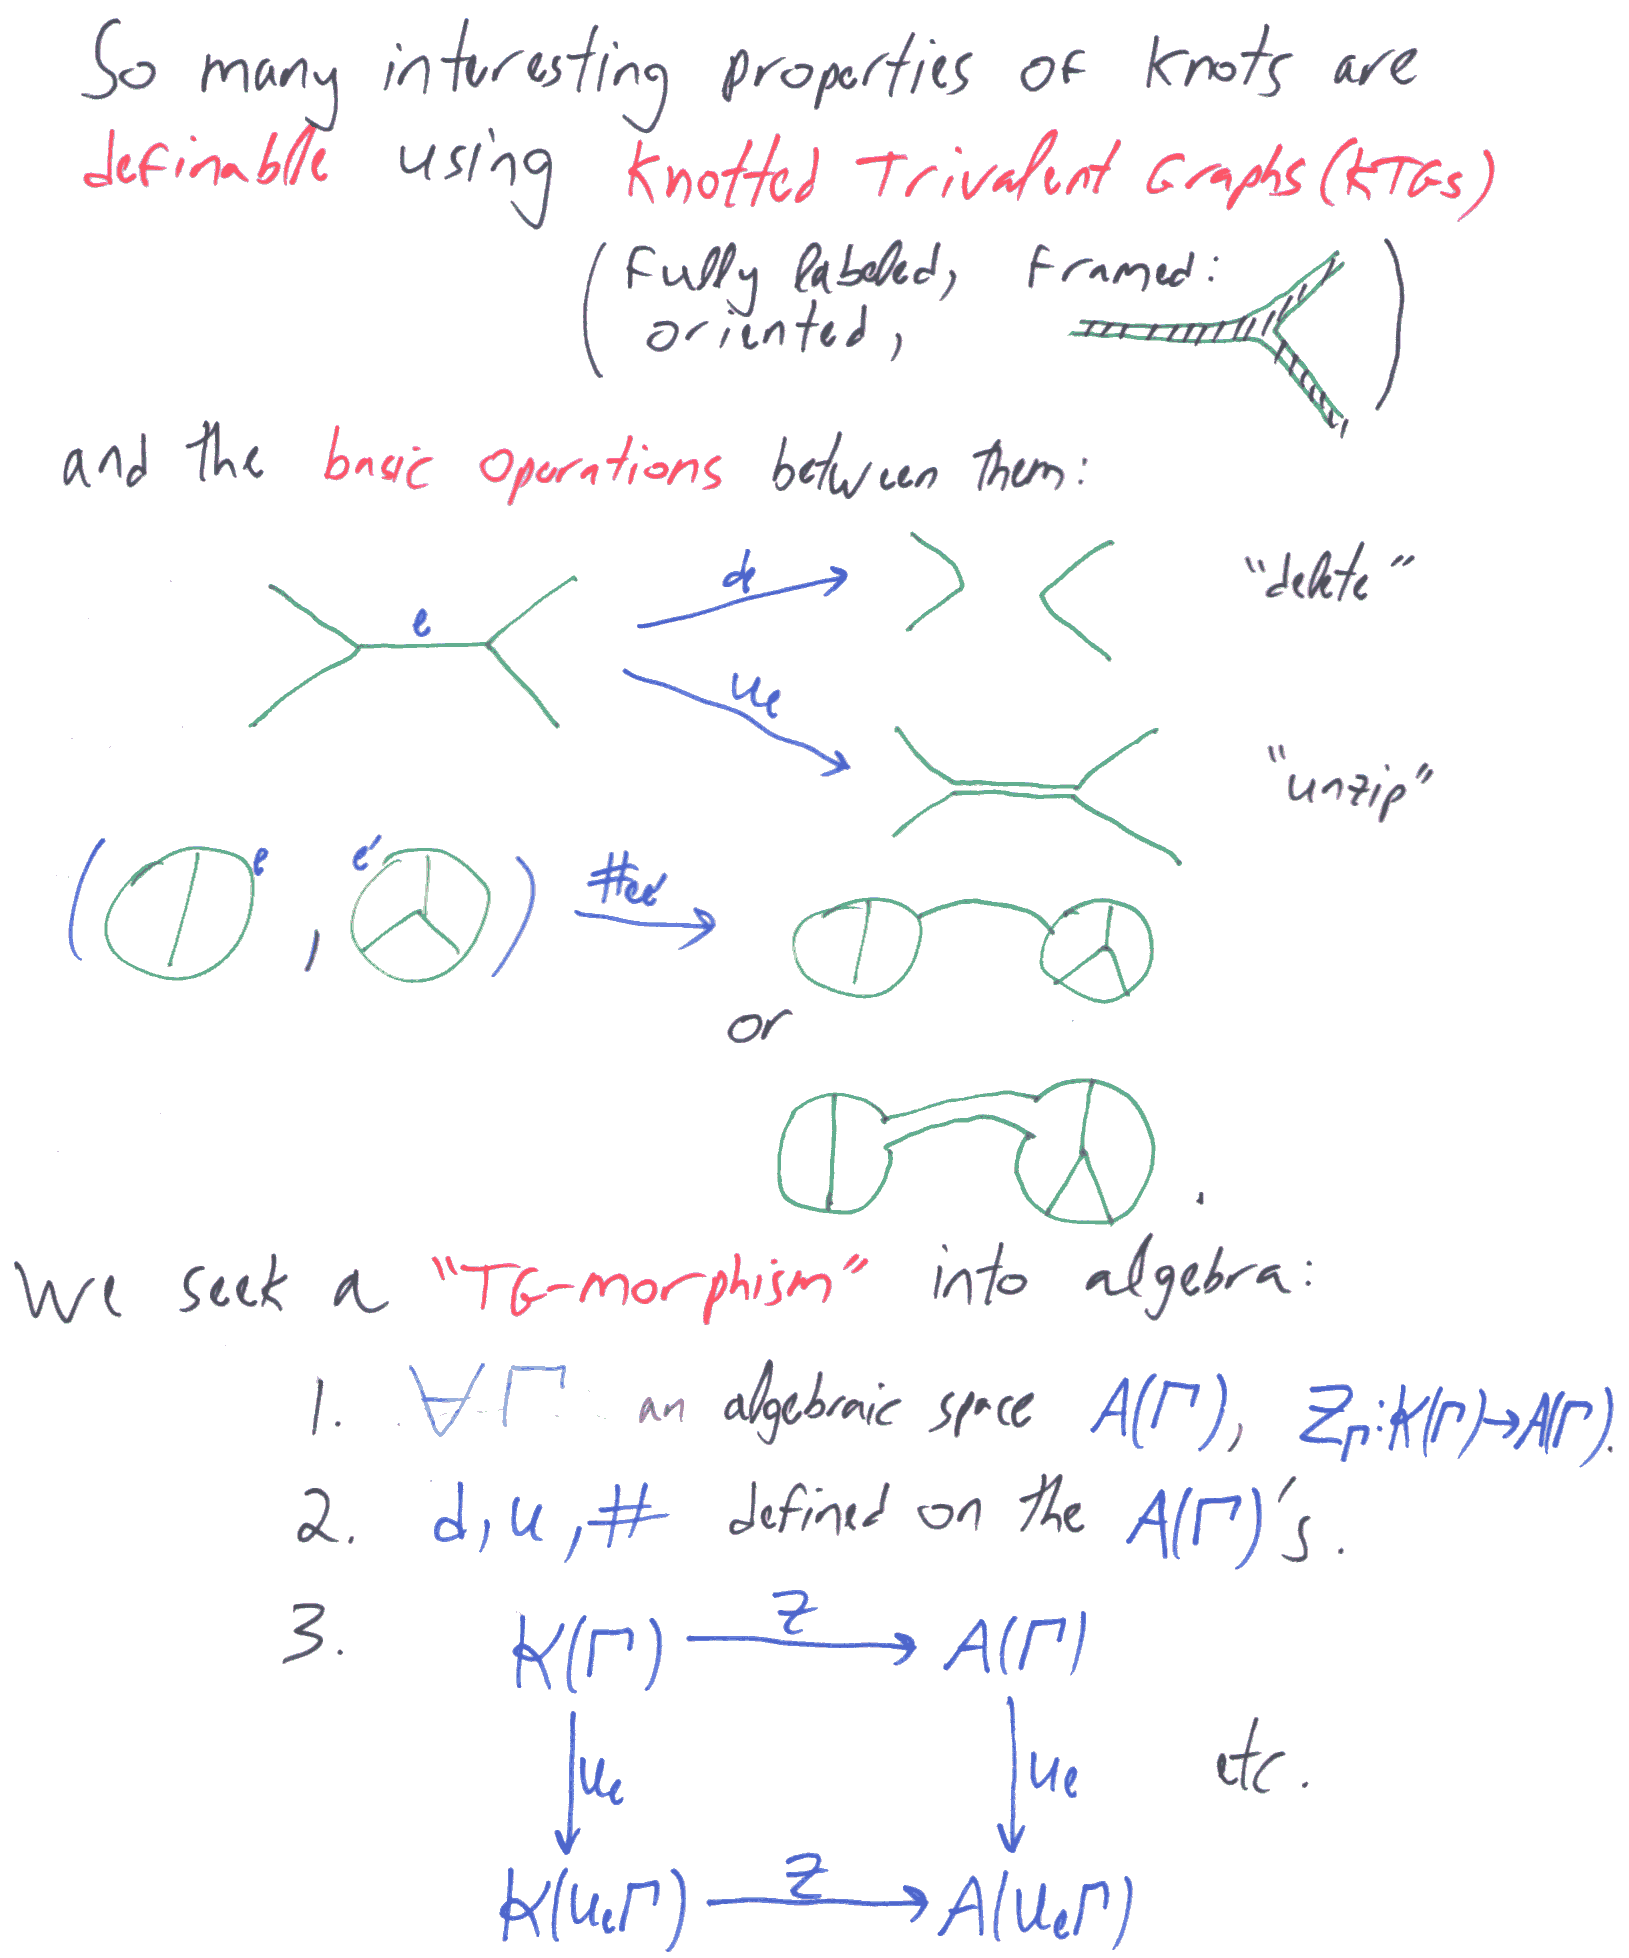 So many interesting properties of knots are
definable using Knotted Trivalent Graphs (KTGs)
(Fully labeled, Framed: )
oriented,
and the basic operations between them:
e d_e "delete"
u_e "unzip"
( e , e' ) #_{ee'}
or
.
We seek a "TG-morphism" into algebra:
1. ∀Γ an algebraic space A(Γ), Z_Γ:K(Γ)→A(Γ).
2. d,u,# defined on the A(Γ)'s.
3. K(Γ) Z→ A(Γ)
↓u_e ↓u_e etc.
K(u_eΓ) Z→ A(u_eΓ)